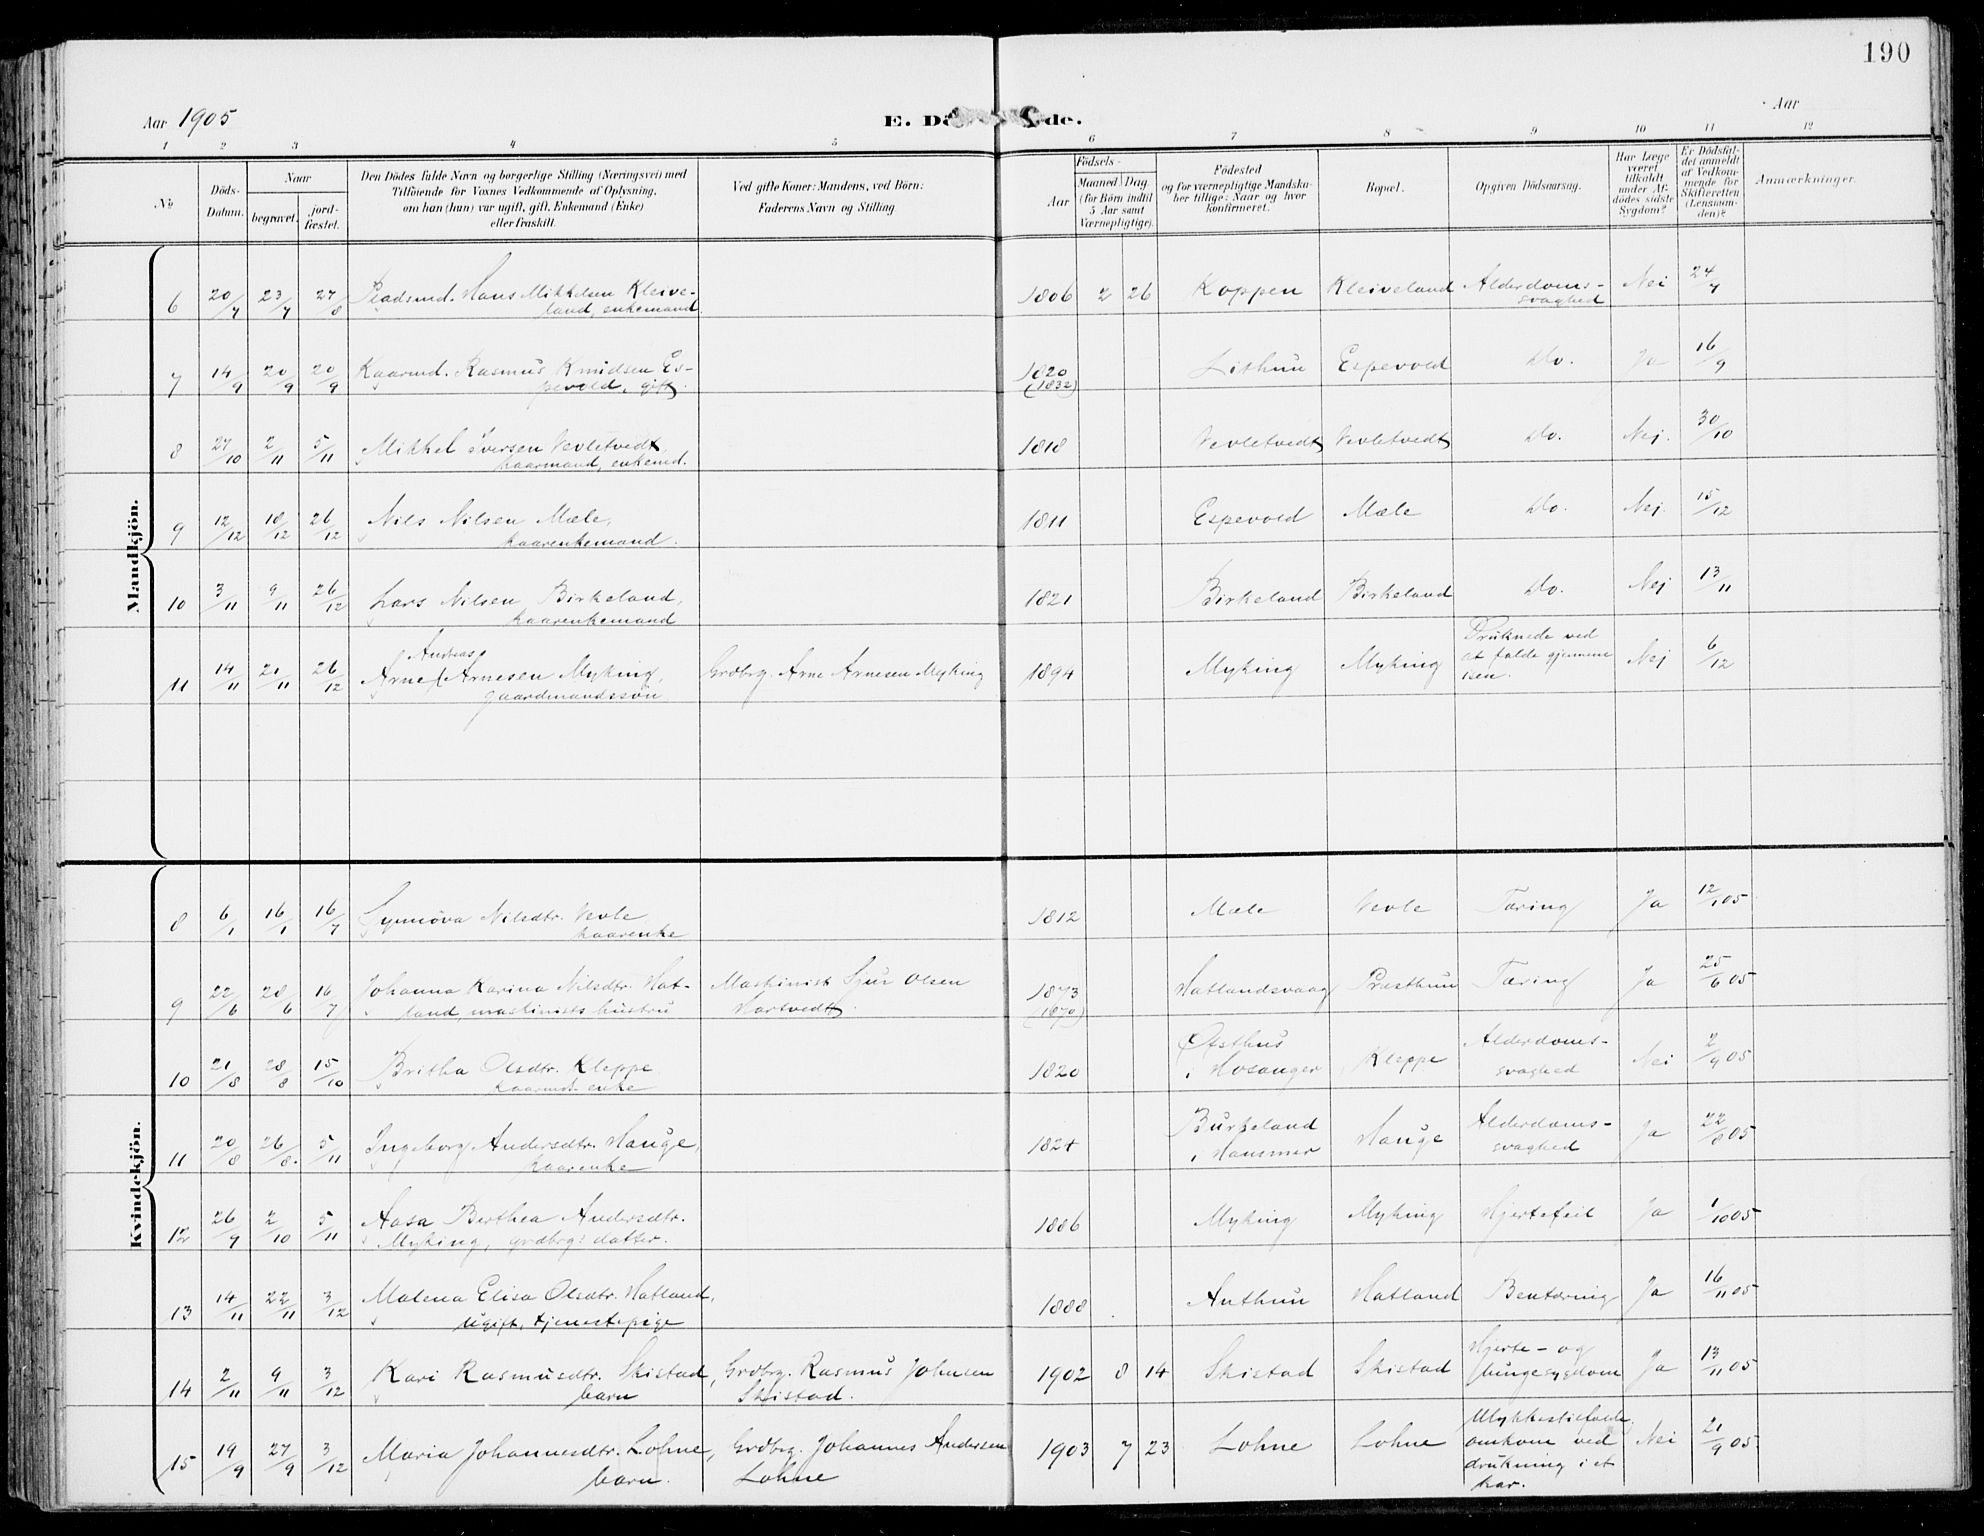 190
Aar 1905
E. Dö de.
Aar
1 2 3 4 5 6 7 8 9 10 11 12
No
Döds-
Datum.
Naar
begravet.
jord-
fæstet.
Den Dödes fulde Navn og borgerlige Stilling (Næringsvei) med
Tilföiende for Voxnes Vedkommende af Oplysning,
om han (hun) var ugift, gift, Enkemand (Enke)
eller fraskilt.
Ved gifte Koner: Mandens, ved Börn:
Faderens Navn og Stilling.
Födsels-
Aar
Maaned. Dag.
(for Börn indtil
5 Aar samt
Værnepligtige).
Födested
og for værnepligtige Mandska-
ber tillige: Naar og hvor
konfirmeret.
Bopæl.
Opgiven Dödsaarsag.
Har Læge
været
tilkaldt
under Af-
dödes sidste
Sygdom?
Er Dödsfal-
det anmeldt
af Vedkom-
mende for
Skifteretten
(Lensman-
den)?
Anmærkninger.
Mandkjön.
6 20/7 23/7 27/8 Pladsmd. Hans Mikkelsen Kleive-
land, enkemand. 1806 2 26 Koppen Kleiveland Alderdoms-
svaghed Nei 24/7
7 14/9 20/9 20/9 Kaarmd. Rasmus Knudsen Es-
pevold, gift. 1820
(1832) Lithun Espevold do. Ja 16/9
8 27/10 2/11 5/11 Mikkel Iversen Vevletvedt,
kaarmand, enkemd. 1818 Vevletvedt Vevletvedt do. Nej. 30/10
9 12/12 18/12 26/12 Nils Nilsen Mæle,
kaarenkemand. 1811 Espevold Mæle do. Nej. 15/12
10 3/11 9/11 26/12 Lars Nilsen Birkeland,
kaarenkemand 1821 Birkeland Birkeland do. Nej 13/11
Andreas
11 14/11 21/11 26/12 Arne Arnesen Myking,
gaardmandssön Grdbrg. Arne Arnesen Myking 1894 Myking Myking Druknede ved
at falde gjennem
isen. Nej 6/12
Kvindekjön.
8 6/1 16/1 16/7 Synnöva Nilsdtr. Vevle
kaarenke 1812 Mæle Vevle Tæring Ja 12/1 05
9 22/6 28/6 16/7 Johanna Karina Nilsdtr. Hat-
land, maskinists hustru Maskinist Sjur Olsen
Hartvedt. 1873
(1870) Hatlandsvaag Præsthun Tæring Ja 25/6 05
10 21/8 28/8 15/10 Britha Olsdtr. Kleppe
kaarmds. enke 1820 Ofsthus
i Hosanger Kleppe Alderdoms-
svaghed Nei 2/9 05
11 20/8 26/8. 5/11 Ingeborg Andersdtr. Hauge,
kaarenke 1824 Burkeland
i Hammer Hauge Alderdoms-
svaghed Ja 22/8 05
12 26/9 2/10 5/11 Aasa Berthea Andersdtr.
Myking, grdbrgs datter. 1886 Myking Myking Hjertefeil Ja 1/10 05
13 14/11 22/11 3/12 Malena Elisa Olsdtr. Hatland,
ugift, tjenestepige 1888 Anthun Hatland Bentæring Ja 16/11 05
14 2/11 9/11 3/12 Kari Rasmusdtr. Skistad,
barn Grdbrg. Rasmus Johnsen
Skistad. 1902 8 14 Skistad Skistad Hjerte- og
lungesygdom Ja 13/11 05
15 19/9 27/9 3/12 Maria Johannesdtr. Lohne,
barn. Grdbrg. Johannes Andersen
Lohne 1903 7 23 Lohne Lohne Ulykkestilfælde,
omkom ved
drukning i et
kar. Nei 21/9 05